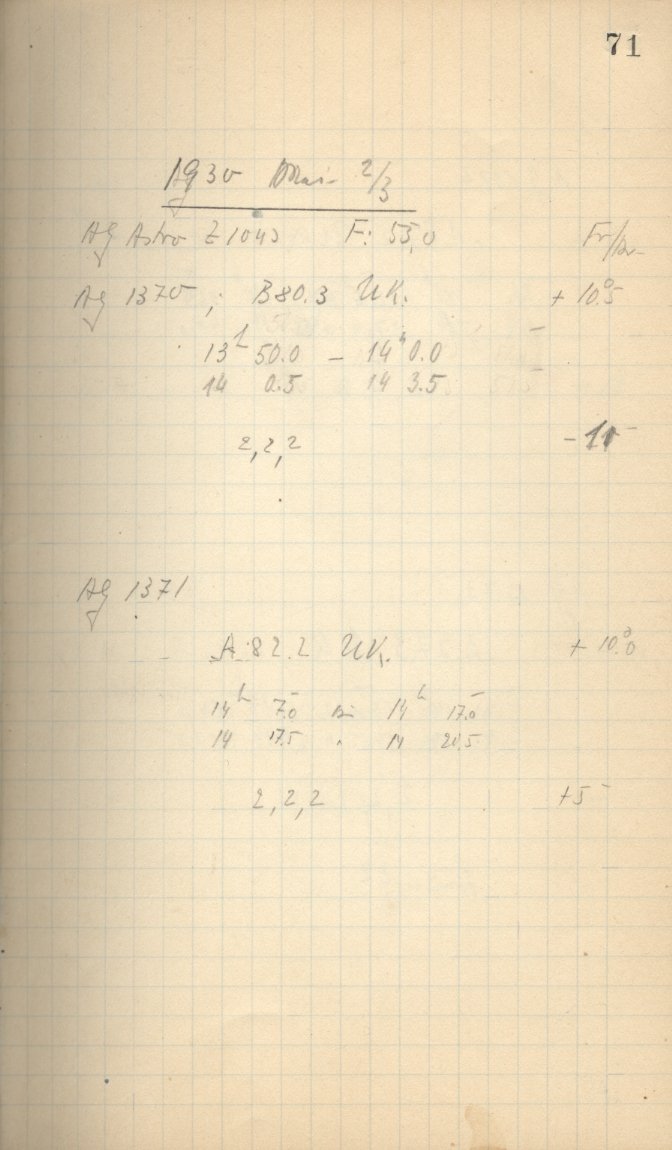 71
1930 Mai 2/3
AG Astro Z 1043 F: 53,0 Fr/
AG 1370; B80.3 UK. + 10.°5
13h 50.0 – 14h 0.0
14 0.5 14 3.5
2,2,2
AG 1371
A 82.2 UK. + 10.°0
14h 7.0 14h 17.0
14 17.5 " 14 20.5
2,2,2 +5